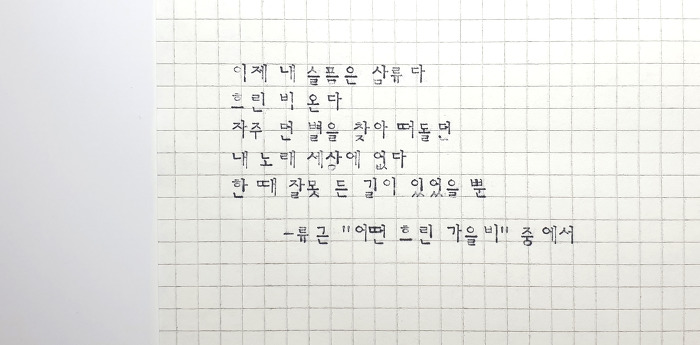 이제 내 슬픔은 삼류다
흐린 비 온다
자주 먼 별을 찾아 떠돌던
내 노래 세상에 없다
한때 잘못 든 길이 있었을 뿐
-류근 "어떤 흐린 가을비" 중에서